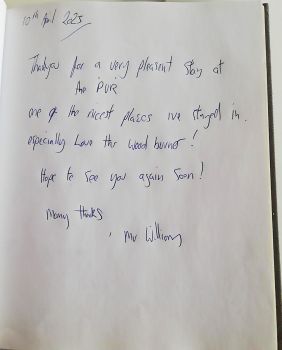 10th April 2025
Thankyou for a very pleasent stay at
the PUR
one of the nicest places ive stayed in.
especially Love the wood burner!
Hope to see you again soon!
Many thanks
Mr Williams